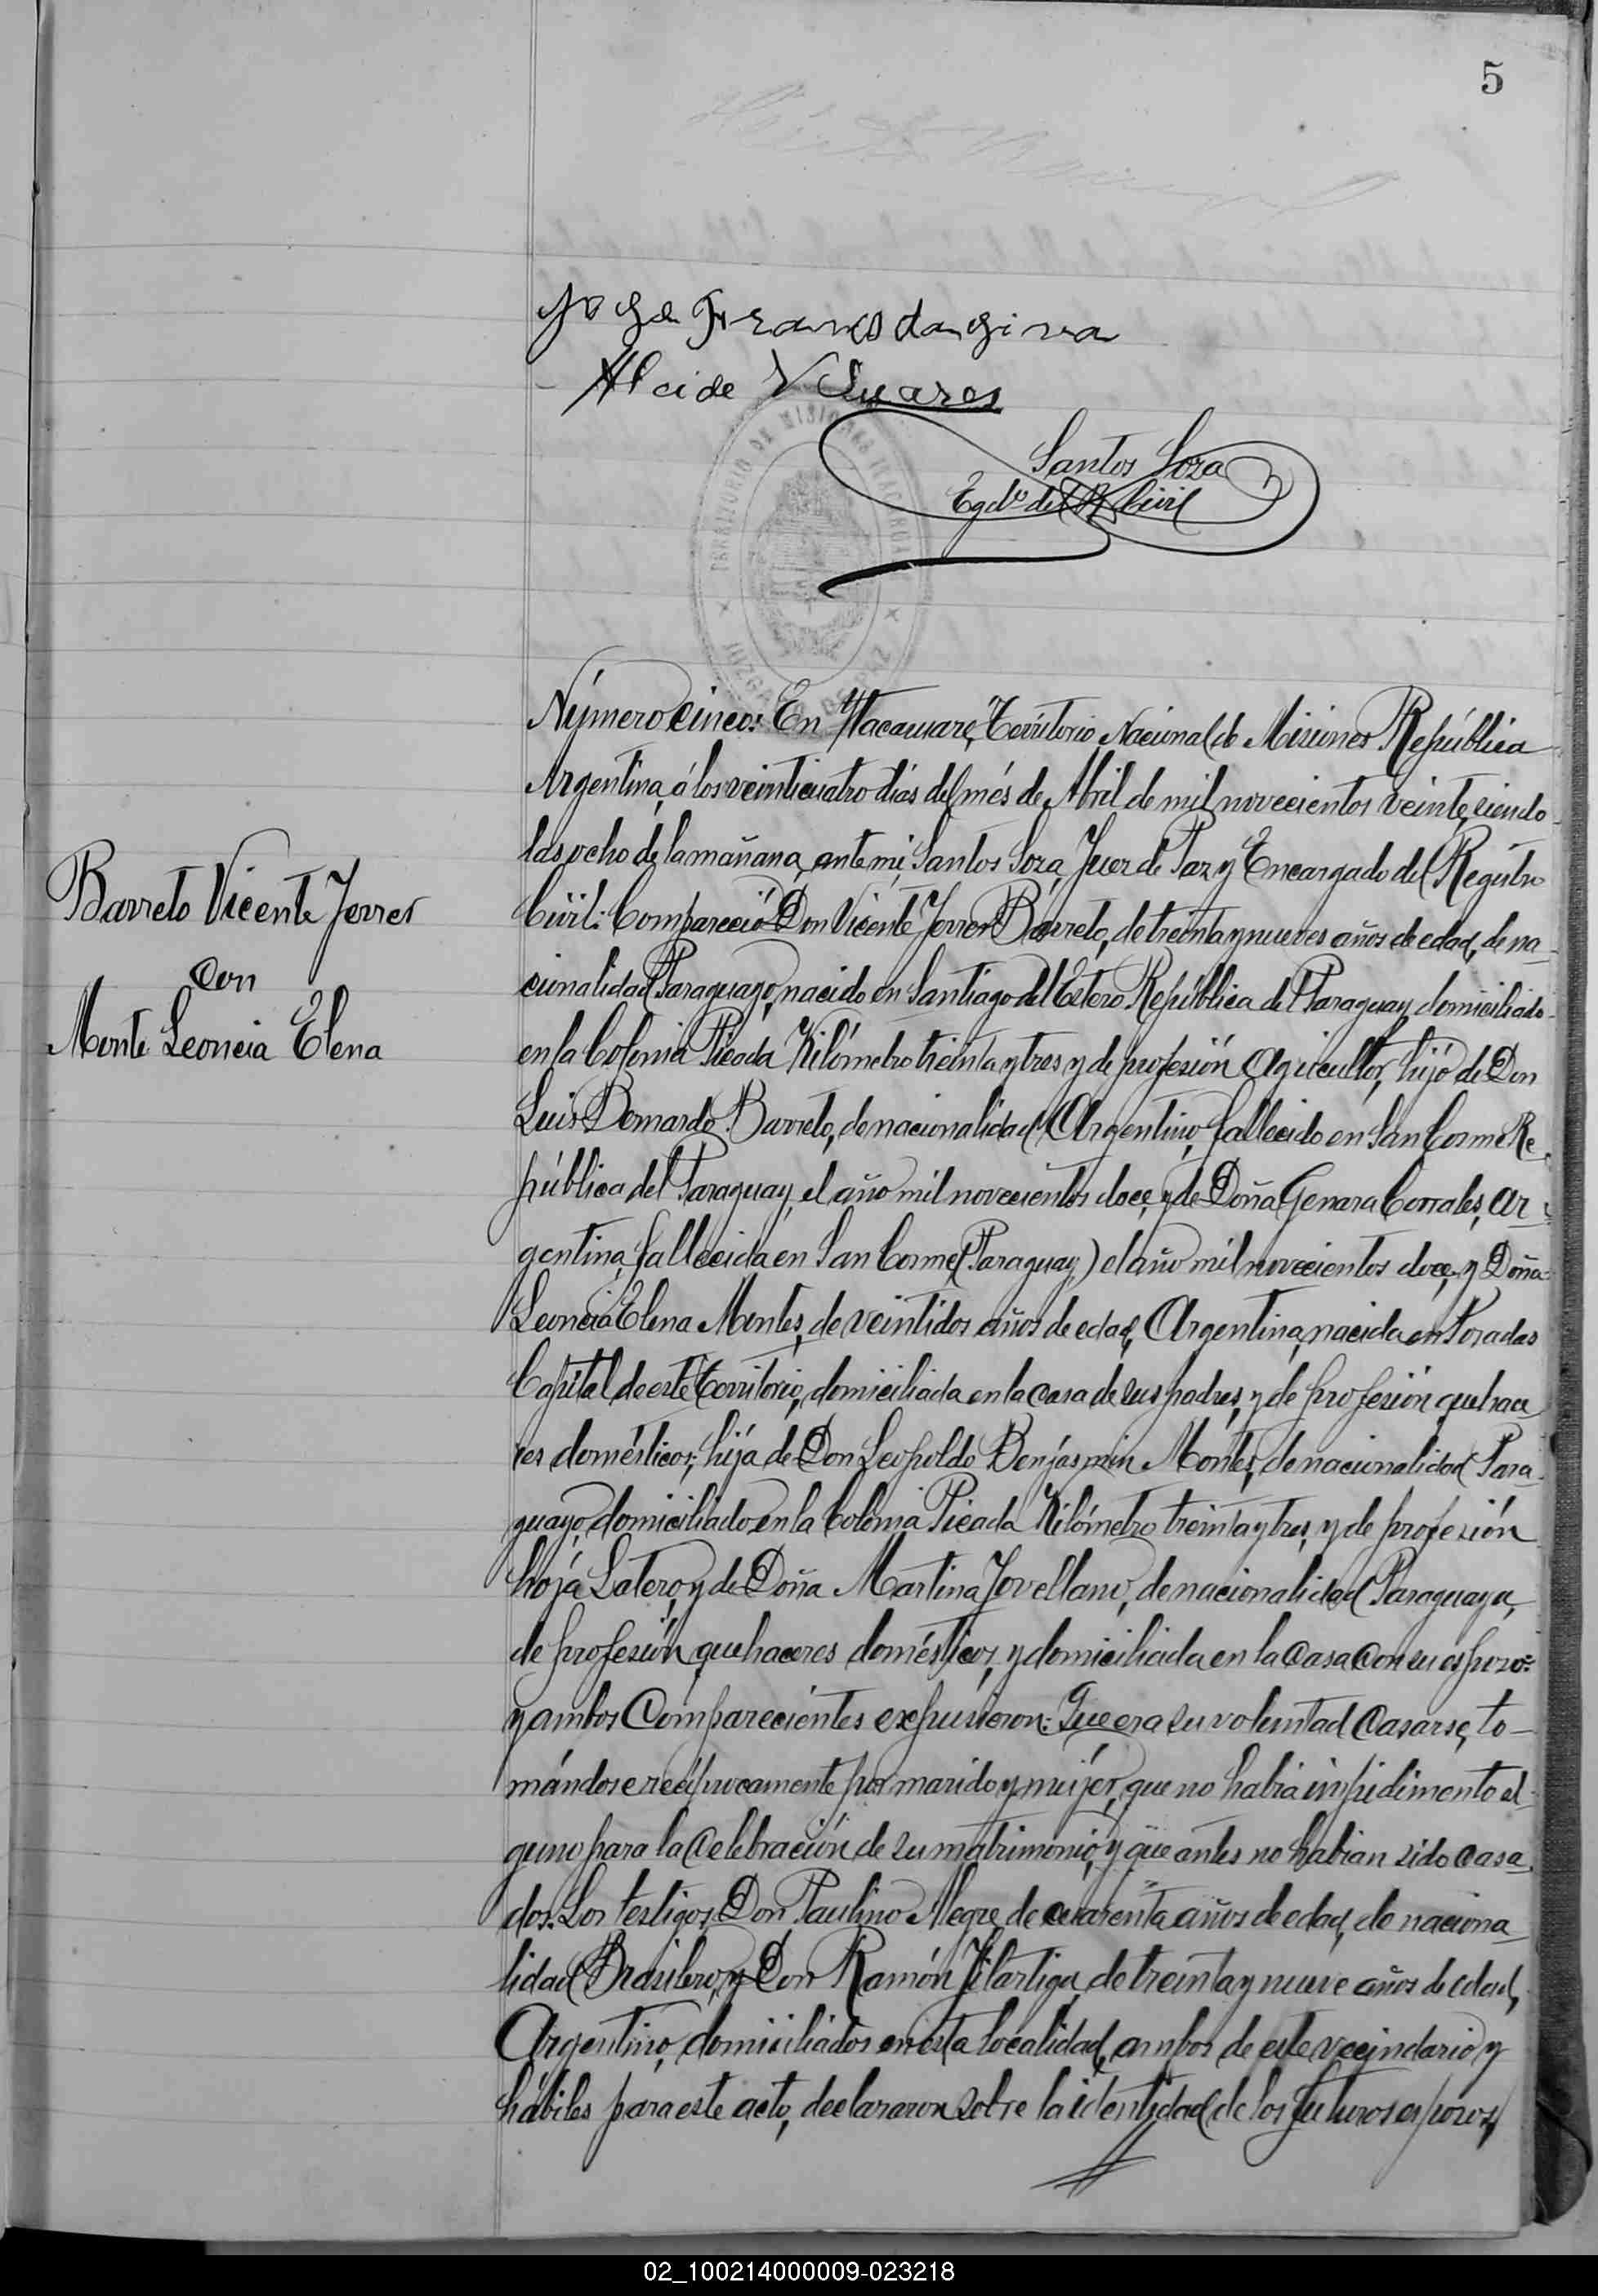 5
Alcide V Suares
Santos Soza
Egdo del R. Civil
TERRITORIO DE MISIONES
JUZGADO DE PAZ
Número cinco: En Ytacaruaré, Territorio Nacional de Misiones República
Argentina, á los veinticuatro dias del més de Abril de mil novecientos veinte, siendo
las ocho de la mañana, ante mi, Santos Soza, Juez de Paz y Encargado del Registro
Civil: Compareció Don Vicente Ferrer Barreto, de treinta y nueves años de edad, de na-
cionalidad Paraguayo, nacido en Santiago del Estero República del Paraguay, domiciliado
Barreto Vicente Ferrer
con
Monte Leoncia Elena
en la Colonia Picada Kilómetro treinta y tres y de profesión Agricultor, hijo de Don
Luis Bernardo Barreto, de nacionalidad Argentino, fallecido en San Cosme Re-
pública del Paraguay, el año mil novecientos doce, y de Doña Genara Corrales, Ar-
gentina, fallecida en San Cosme (Paraguay) el año mil novecientos doce, y Doña
Leoncia Elena Montes, de veintidos años de edad, Argentina, nacida en Posadas
Capital de este Territorio, domiciliada en la casa de sus padres, y de profesión quehace
res domésticos; hija de Don Leopoldo Benjasmin Montes, de nacionalidad Para-
guayo, domiciliado en la Colonia Picada Kilómetro treinta y tres, y de profesión
hoja Latero, y de Doña Martina Jovellano, de nacionalidad Paraguaya,
de profesión quehaceres domésticos, y domiciliada en la casa con su esposo:
y ambos Comparecientes expusieron: Que era su voluntad Casarse, to-
mándose recíprocamente por marido y mujér, que no habia impidimento al-
guno para la Celebración de su matrimonio, y que antes no habian sido casa
dos. Los testigos, Don Paulino Alegre, de cuarenta años de edad, de naciona
lidad Brasilero, y Don Ramón Filartiga, de treinta y nueve años de edad,
Argentino, domiciliados en esta localidad, ambos de este vecindario y
hábiles para este acto, declararon sobre la identidad de los futuros esposos,
02_100214000009-023218